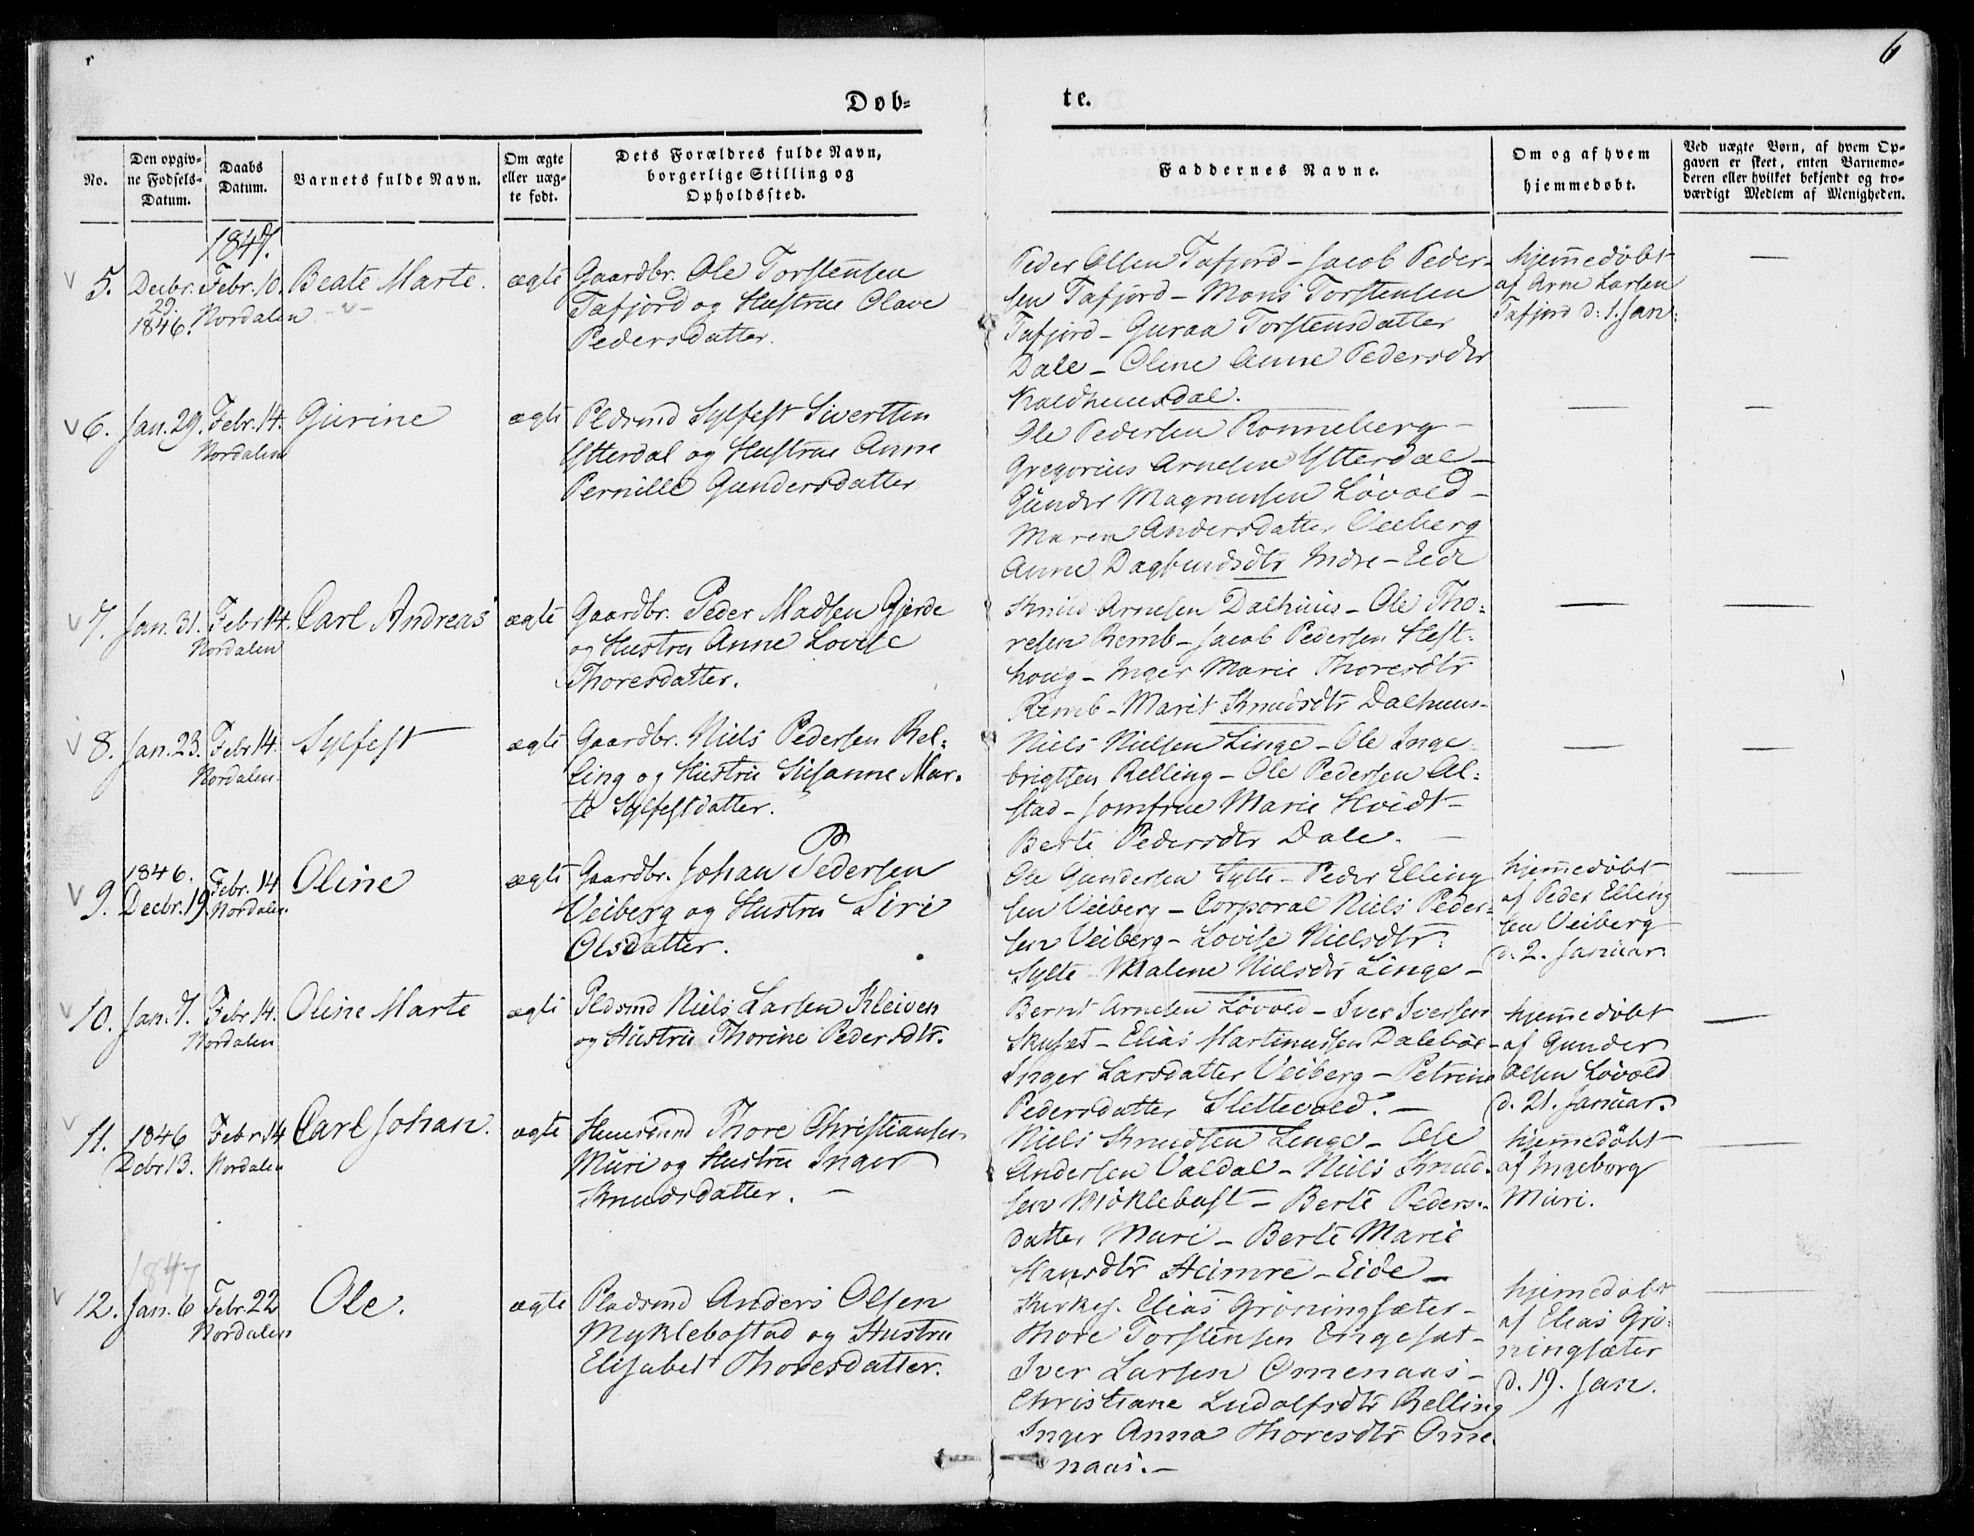 6
Døb-
te.
No.
Den opgiv-
ne Fødsels-
Datum.
Daabs
Datum.
Barnets fulde Navn.
Om ægte
eller uæg-
te født.
Dets Forældres fulde Navn,
borgerlige Stilling og
Opholdssted.
Faddernes Navne.
Om og af hvem
hjemmedøbt.
Ved uægte Børn, af hvem Op-
gaven er skeet, enten Barnemo-
deren eller hvilket bekjendt og tro-
værdigt Medlem af Menigheden.
1847.
5.
Decbr.
29.
1846.
Febr. 10.
Nordalen
Beate Marte.
ægte
Gaardbr. Ole Torstensen
Tafjord og Hustrue Olave
Pedersdatter.
Peder Olsen Tafjord - Jacob Peder-
sen Tafjord - Mons Torstensen
Tafjord - Guraa Torstensdatter
Dale - Oline Anne Pedersdtr
Kaldhuusdal.
hjemmedøbt
af Arne Larsen
Tafjord d: 1. Jan:
6.
Jan. 29.
Febr. 14.
Nordalen
Gurine
ægte
Pldsmd Sylfest Sivertsen
Ytterdal og Hustrue Anne
Pernille Gundersdatter
Ole Pedersen Ronneberg -
Gregorius Arnesen Ytterdal -
Gunder Magnussen Løvold -
Maren Andersdatter Veiberg
Anne Dagfindsdtr Indre-Eide
7.
Jan. 31.
Febr 14.
Nordalen
Carl Andreas
ægte
Gaardbr. Peder Madsen Gjerde
og Hustru Anne Lovise
Thoresdatter.
Knud Arnesen Dalhuus - Ole Tho-
resen Remb - Jacob Pedersen Hest-
houg - Inger Marie Thoresdtr
Remb - Marit Knudsdtr Dalhuus -
8.
Jan. 23.
Febr 14.
Nordalen.
Sylfest
ægte
Gaardbr. Niels Pedersen Rel-
ling og Hustru Susanne Mar-
te Sylfestdatter.
Niels Nielsen Linge - Ole Inge-
brigtsen Relling - Ole Pedersen Al-
stad - Jomfrue Marie Hvidt -
Berte Pedersdtr Dale. -
9.
1846.
Decbr. 19.
Febr. 14
Nordalen.
Oline
ægte
P
Gaardbr. Johan Pedersen
Veiberg og Hustru Siri
Olsdatter.
Ole Gundersen Sylte - Peder Elling
sen Veiberg - Corporal Niels Peder-
sen Veiberg - Lovise Nielsdtr.
Sylte - Malene Nielsdtr Linge -
hjemmedøbt
af Peder Elling
sen Veiberg
d. 2. Januar.
10.
Jan. 7.
Febr 14.
Nordalen
Oline Marte
ægte
Pldsmd Niels Larsen Kleiven
og Hustru Thorine Pedersdtr.
Bernt Arnesen Løvold - Iver Iversen
Skuset - Elias Martinussen Dalebøe -
Inger Larsdatter Veiberg - Petrine
Pedersdatter Slettevold. -
hjemmedøbt
af Gunder
Olsen Løvold
d. 21. Januar.
11.
1846
Debr 13.
Febr 14
Nordalen
Carl Johan.
ægte
Huusmd Thore Christiansen
Muri og Hustru Inger
Knudsdatter. -
Niels Knudsen Linge - Ole
Andersen Valdal - Niels Knud-
sen Møklebust - Berte Peders-
datter Muri - Berte Marie
Hansdtr Heimre-Eide -
hjemmedøbt
af Ingeborg
Muri.
12.
1847
Jan. 6
Febr. 22
Nordalen
Ole.
ægte
Pladsmd Anders Olsen
Myklebostad og Hustru
Elisabet Thoresdatter.
Kirkes. Elias Grøningsæter -
Thore Torstensen Engeset -
Iver Larsen Omenaas -
Christiane Ludolfsdtr Relling
Inger Anna Thoresdtr Ome-
naas. -
hjemmedøbt
af Elias Grø-
ningsæter
d. 19. Jan.